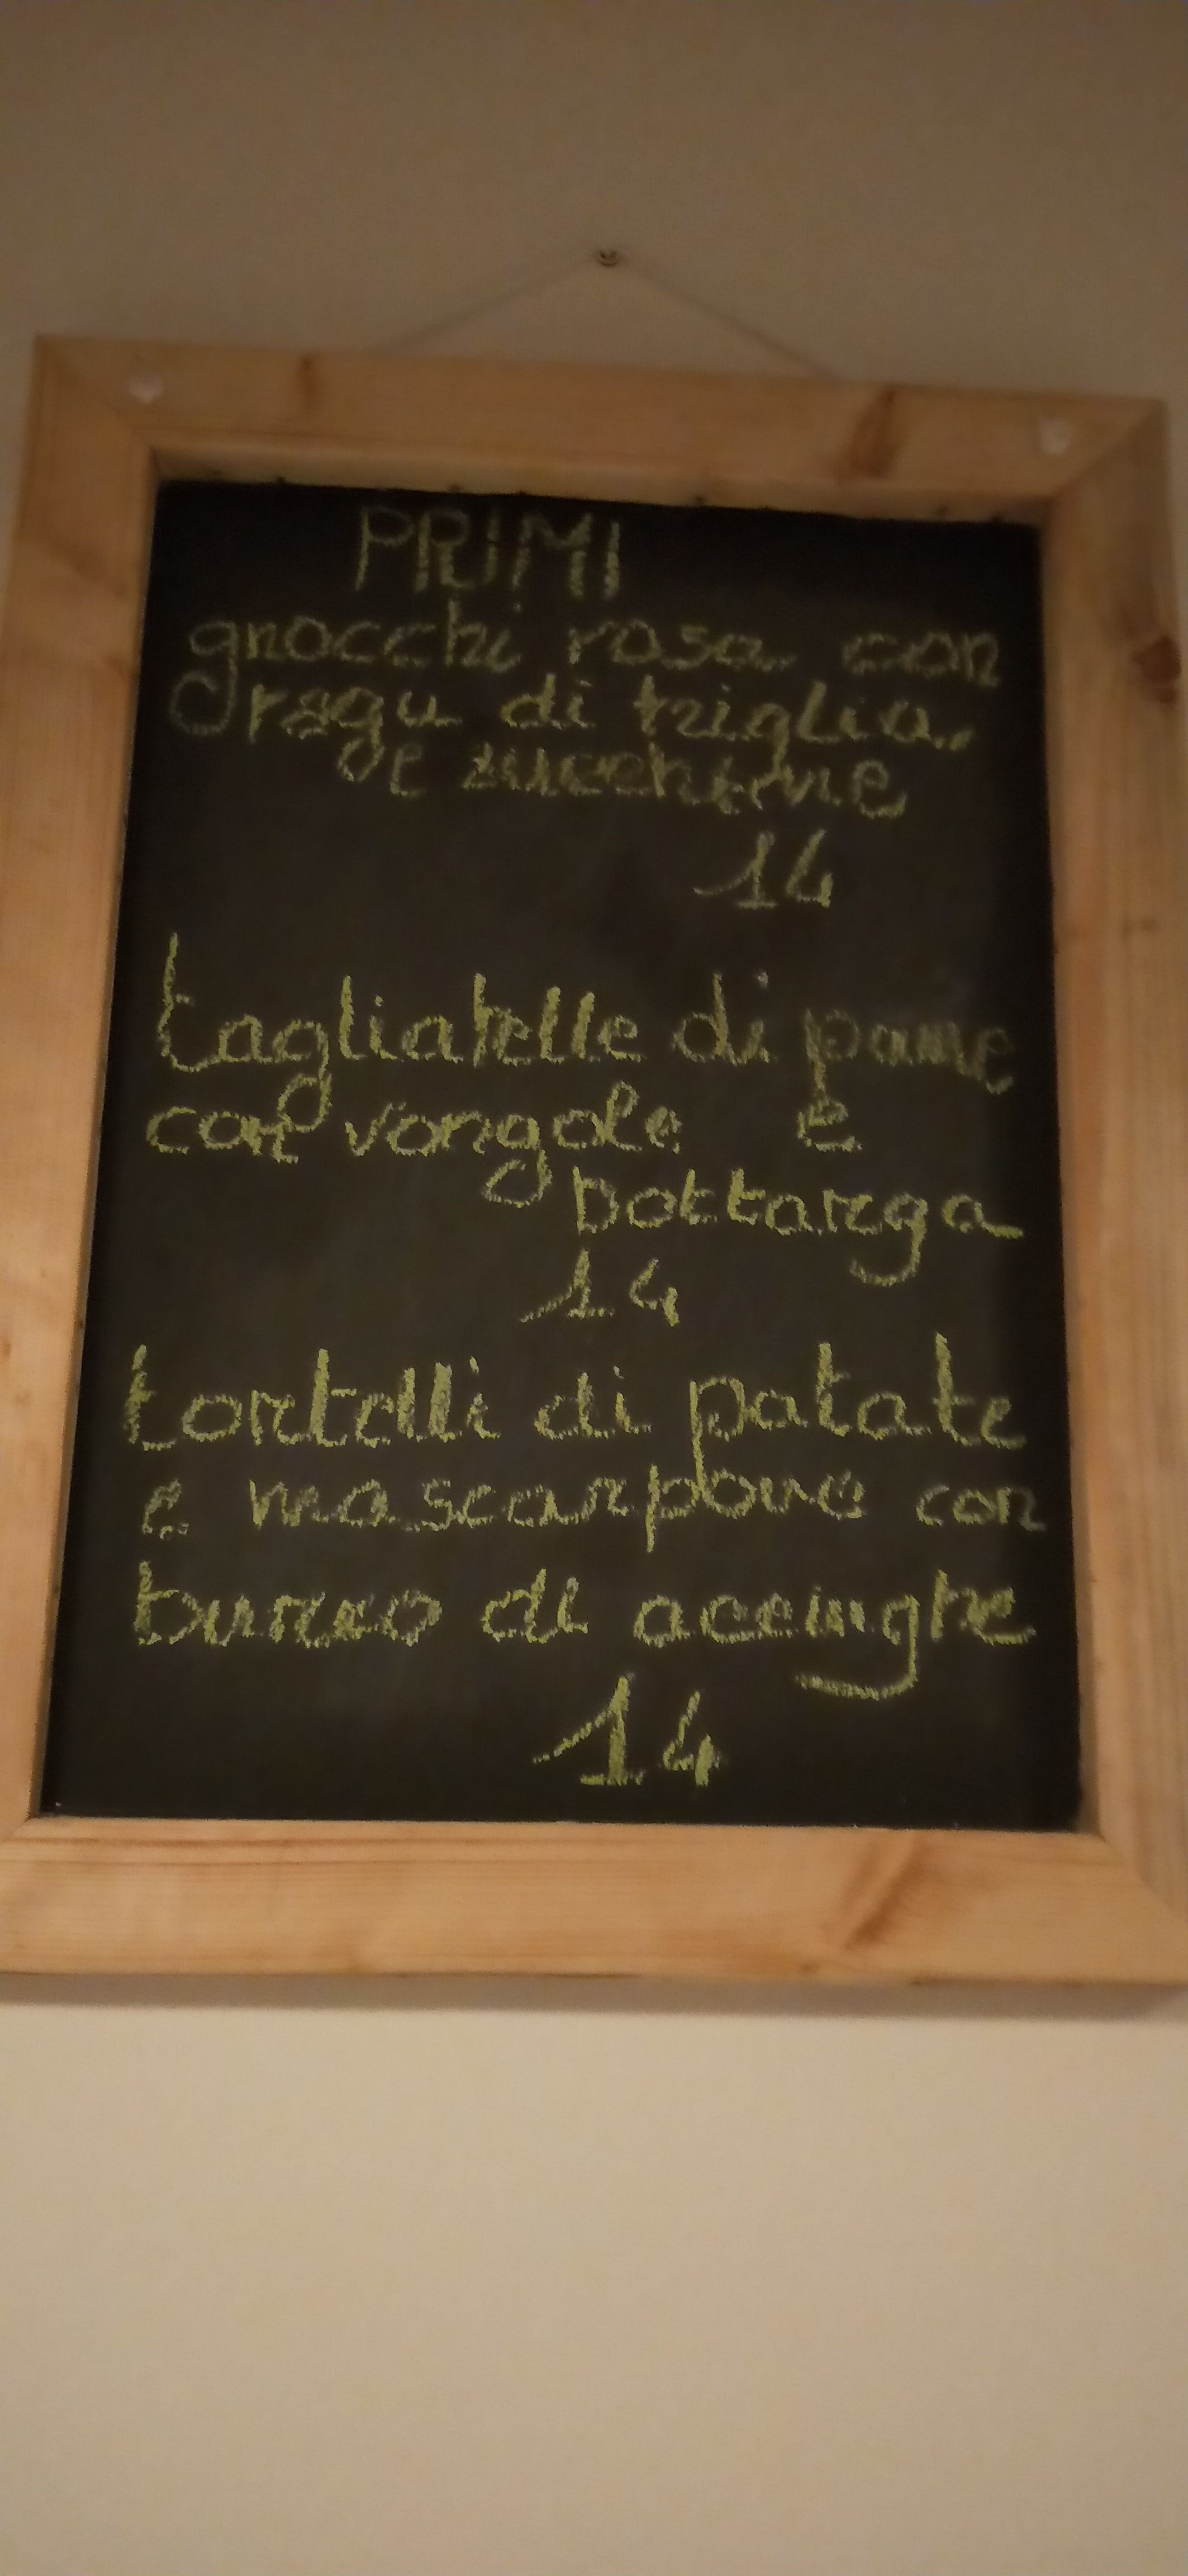 PRIMI
gnocchi rosa con
ragu di triglia
e zucchine
14
tagliatelle di pane
con vongole e
bottarga
14
tortelli di patate
e mascarpone con
burro di acciughe
14